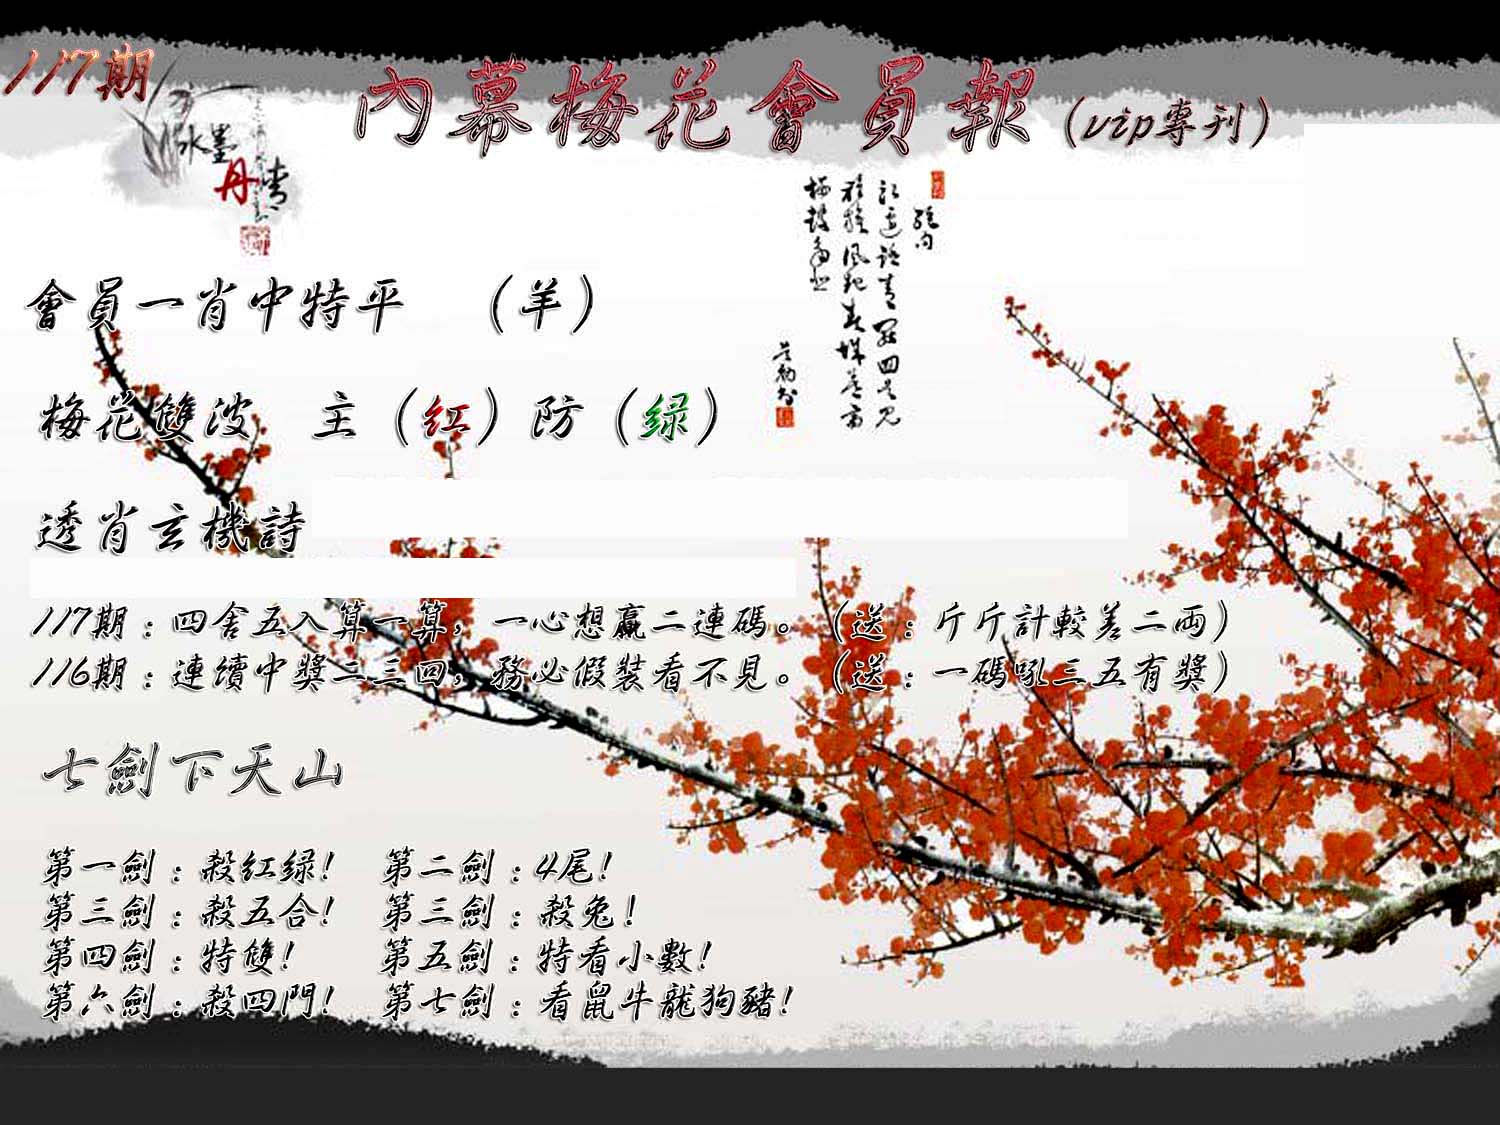 117期
內幕梅花會員報（vip專刊）
水墨
丹青
會員一肖中特平 （羊）
梅花雙波 主（红）防（绿）
透肖玄機詩
117期：四舍五入算一算，一心想贏二連碼。（送：斤斤計較差二両）
116期：連續中獎二三四，務必假裝看不見。（送：一碼吼三五有獎）
七劍下天山
第一劍：殺红绿！ 第二劍：4尾！
第三劍：殺五合！ 第三劍：殺兔！
第四劍：特雙！ 第五劍：特看小數！
第六劍：殺四門！ 第七劍：看鼠牛龍狗豬！